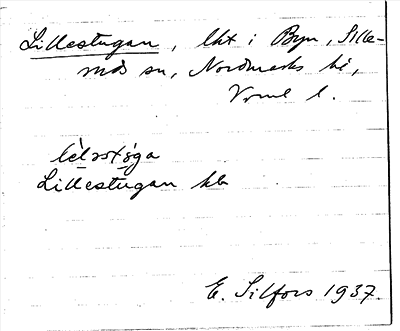 Lillestugan, lht i Byn, Sille-
mds sn, Nordmarks hd,
Vrml l.
Lillestugan hb
E. Silfors 1937.